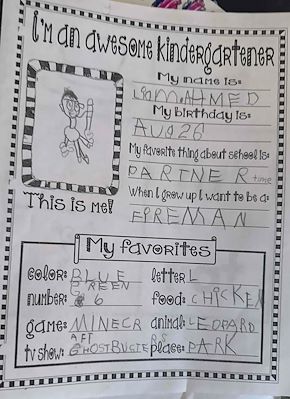 I'm an awesome kindergartener
My name is:
AHMED
My birthday is:
AUG 26
My favorite thing about school is:
PARTNER time
This is me!
When I grow up I want to be a:
FIREMAN
My favorites
color: BLUE GREEN
letter: L
number: 6
food: CHICKEN
game: MINECRAFT
animal: LEOPARD
tv show: GHOSTBUSTERS
place: PARK